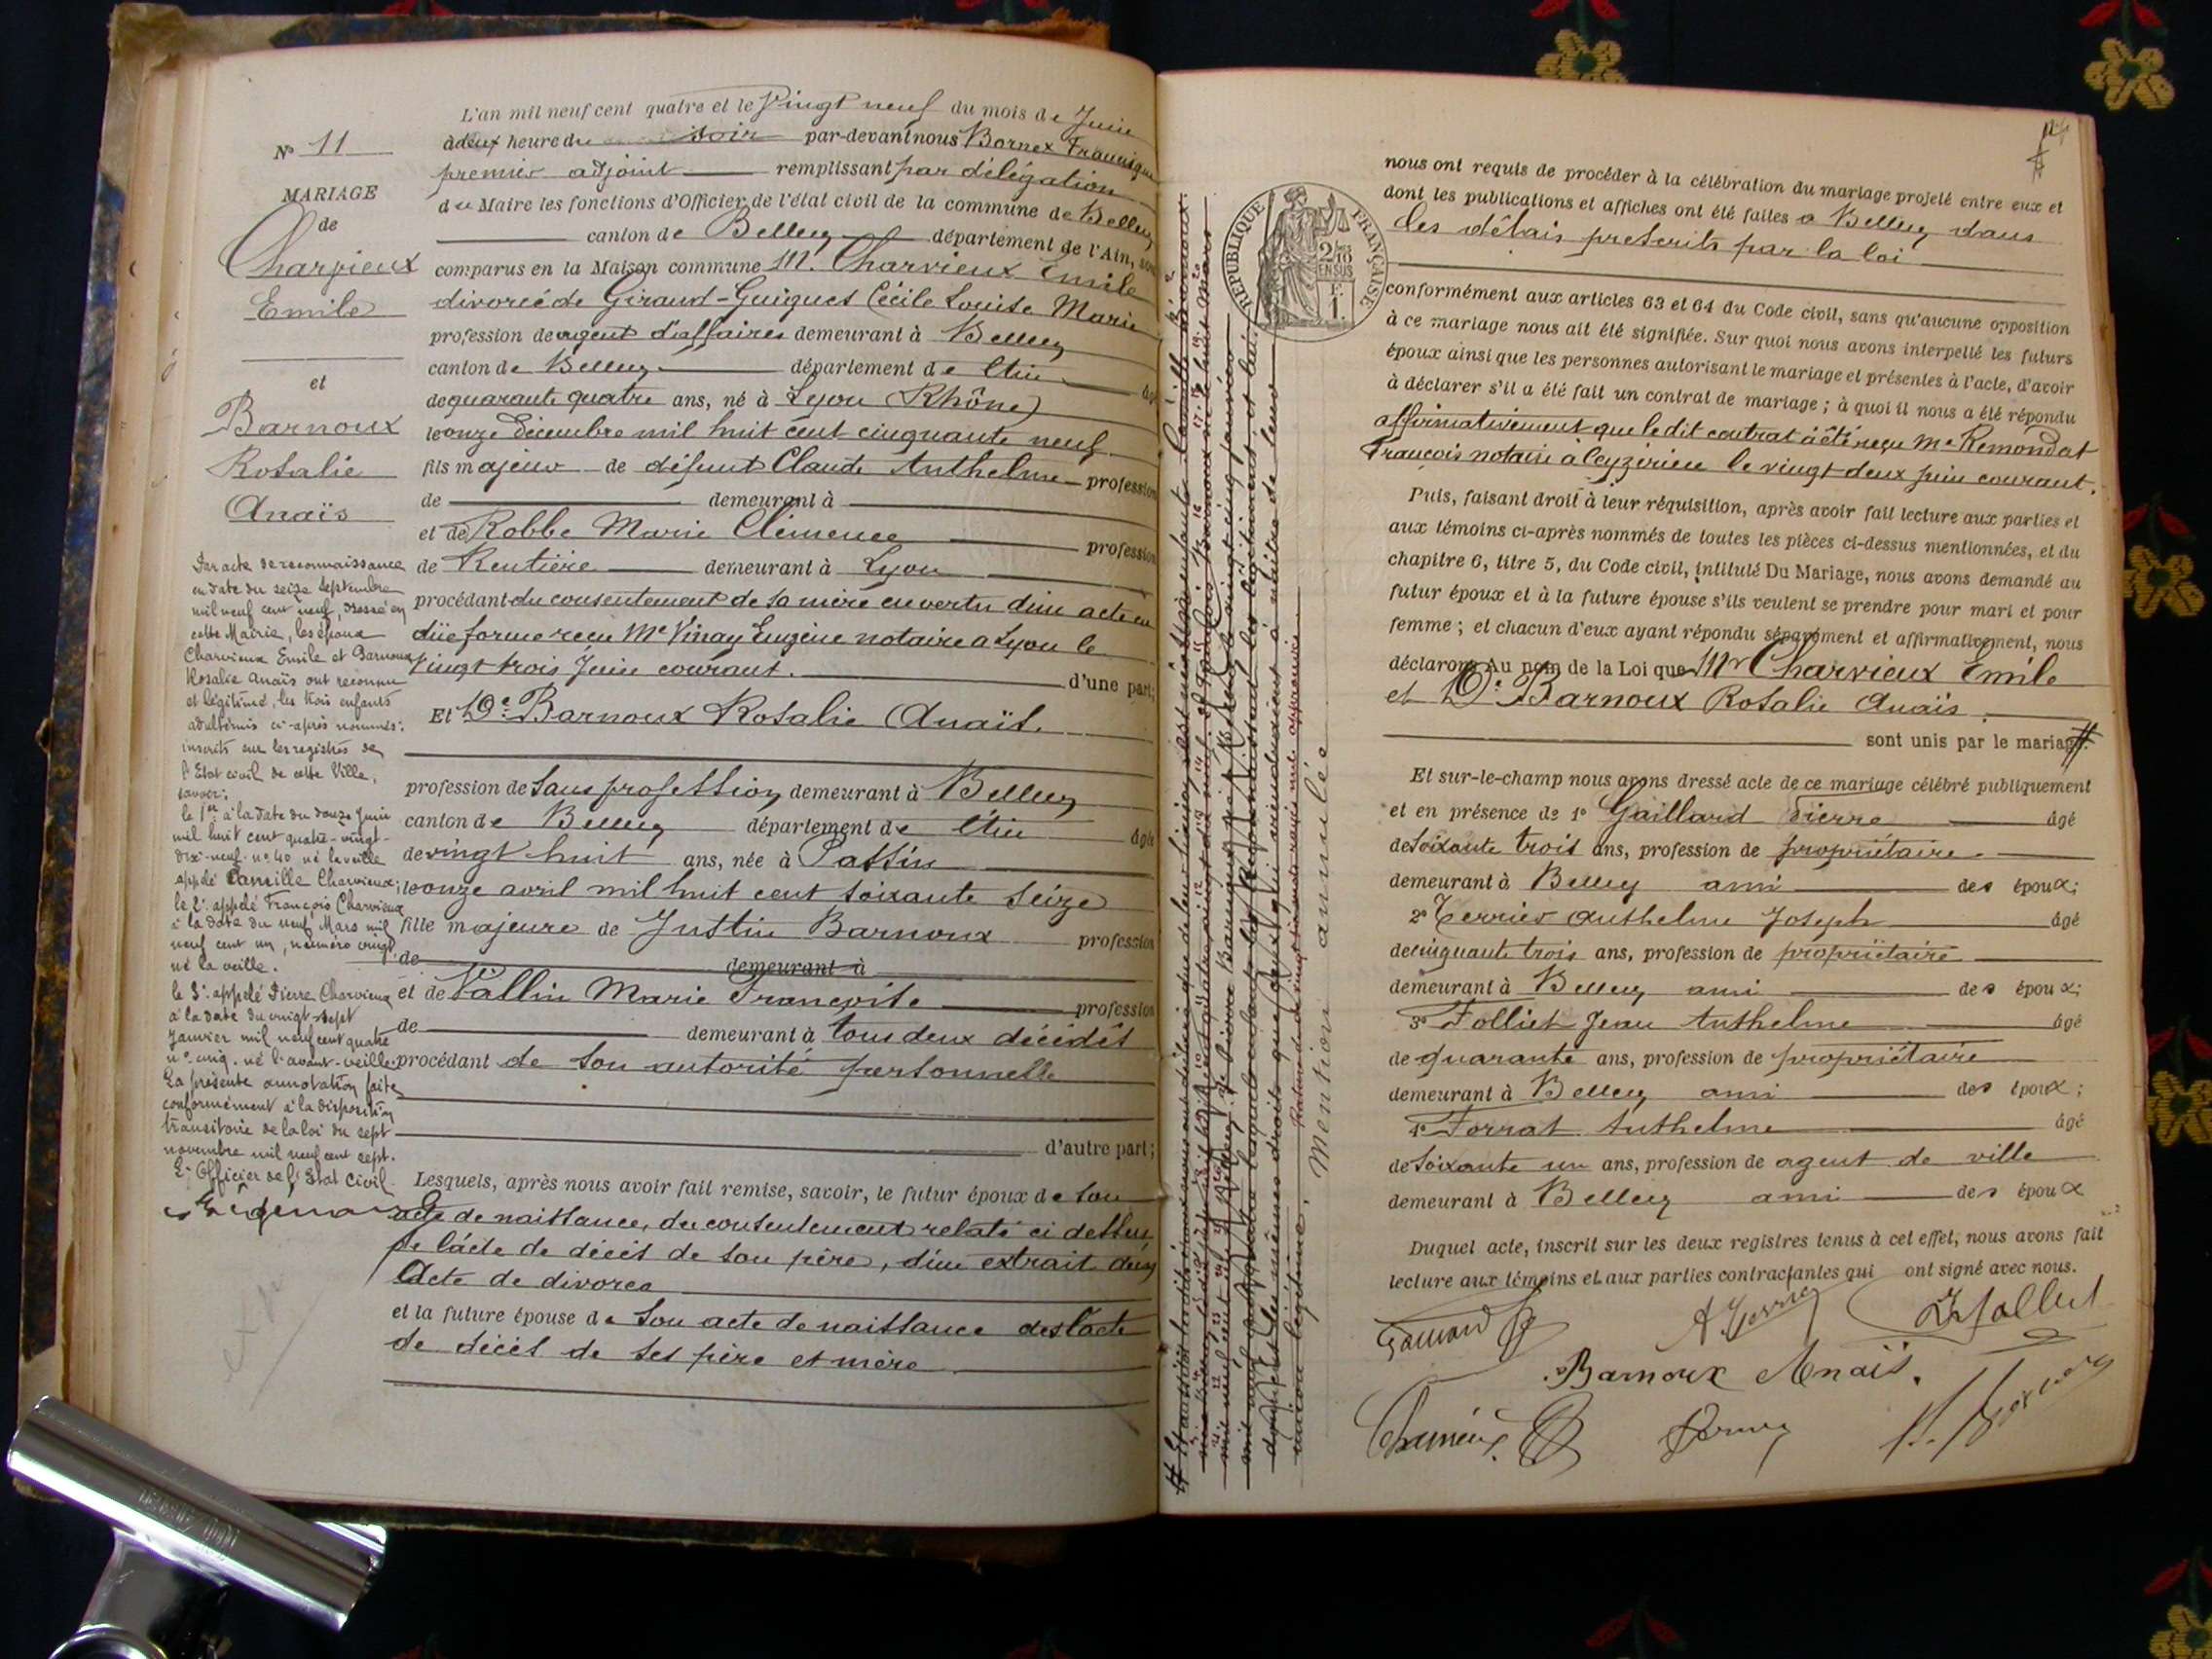 L'an mil neuf cent quatre et le Vingt neuf du mois de Juin
à deux heure du soir par-devant nous Bornex Francisque
premier adjoint remplissant par délégation
du Maire les fonctions d'Officier de l'état civil de la commune de Belley
canton de Belley département de l'Ain, sont
comparus en la Maison commune M. Charvieux Emile
divorcé de Giraud-Guigues Cécile Louise Marie
profession de agent d'affaires demeurant à Belley
canton de Belley département de l'Ain âgé
de quarante quatre ans, né à Lyon (Rhône)
le onze Décembre mil huit cent cinquante neuf
fils majeur de défunt Claude Anthelme profession
de demeurant à
et de Robbe Marie Clémence profession
de Rentière demeurant à Lyon
procédant du consentement de sa mère en vertu d'un acte en
due forme reçu Me Vinay Eugène notaire a Lyon le
vingt trois Juin courant. d'une part;
Et De Barnoux Rosalie Anaïs.
profession de Sans profession demeurant à Belley
canton de Belley département de l'Ain âgée
de vingt huit ans, née à Passin
le onze avril mil huit cent soixante seize
fille majeure de Justin Barnoux profession
de demeurant à
et de Vallin Marie Françoise profession
de demeurant à tous deux décédés
procédant de son autorité personnelle
d'autre part;
Lesquels, après nous avoir fait remise, savoir, le futur époux de son
acte de naissance, du consentement relaté ci dessus,
de l'acte de décès de son père, d'un extrait du
Acte de divorce
et la future épouse de son acte de naissance des l'acte
de décès de ses père et mère
No 11
MARIAGE
de
Charvieux
Emile
et
Barnoux
Rosalie
Anaïs
Par acte de reconnaissance
en date du seize Septembre
mil neuf cent neuf, dressé en
cette Mairie, les époux
Charvieux Emile et Barnoux
Rosalie Anaïs ont reconnu
et légitimé, les trois enfants
adultérins ci-après nommés:
inscrits sur les registres de
l'Etat civil de cette Ville,
savoir;
le 1er à la date du douze Juin
mil huit cent quatre-vingt-
dix-neuf no 40 né la veille
appelé Camille Charvieux;
le 2e appelé François Charvieux
à la date du neuf Mars mil
neuf cent un, numéro vingt
né la veille.
le 3e appelé Pierre Charvieux
à la date du vingt-sept
Janvier mil neuf cent quatre
no cinq. né l'avant-veille.
La présente annotation faite
conformément à la disposition
transitoire de la loi du sept
novembre mil neuf cent sept.
L'Officier de l'Etat Civil
Mention annulée
REPUBLIQUE FRANÇAISE
2/10
EN SUS
F.
1.
nous ont requis de procéder à la célébration du mariage projeté entre eux et
dont les publications et affiches ont été faites a Belley dans
les délais prescrits par la loi
conformément aux articles 63 et 64 du Code civil, sans qu'aucune opposition
à ce mariage nous ait été signifiée. Sur quoi nous avons interpellé les futurs
époux ainsi que les personnes autorisant le mariage et présentes à l'acte, d'avoir
à déclarer s'il a été fait un contrat de mariage; à quoi il nous a été répondu
affirmativement que le dit contrat a été reçu Me Remondat
François notaire à Ceyzérieu le vingt deux juin courant.
Puis, faisant droit à leur réquisition, après avoir fait lecture aux parties et
aux témoins ci-après nommés de toutes les pièces ci-dessus mentionnées, et du
chapitre 6, titre 5, du Code civil, intitulé Du Mariage, nous avons demandé au
futur époux et à la future épouse s'ils veulent se prendre pour mari et pour
femme; et chacun d'eux ayant répondu séparément et affirmativement, nous
déclarons Au nom de la Loi que Mr Charvieux Emile
et De Barnoux Rosalie Anaïs
sont unis par le mariage.
Et sur-le-champ nous avons dressé acte de ce mariage célébré publiquement
et en présence de 1° Gaillard Pierre âgé
de soixante trois ans, profession de propriétaire
demeurant à Belley ami des époux;
2° Terrier Anthelme Joseph âgé
de cinquante trois ans, profession de propriétaire
demeurant à Belley ami des époux;
3° Folliet Jean Anthelme âgé
de quarante ans, profession de propriétaire
demeurant à Belley ami des époux;
4° Forrat Anthelme âgé
de soixante un ans, profession de agent de ville
demeurant à Belley ami des époux
Duquel acte, inscrit sur les deux registres tenus à cet effet, nous avons fait
lecture aux témoins et aux parties contractantes qui ont signé avec nous.
Barnoux Anaïs.
Charvieux